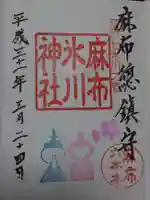 麻布總鎮守
麻布
氷川
神社
平成三十一年三月二十四日